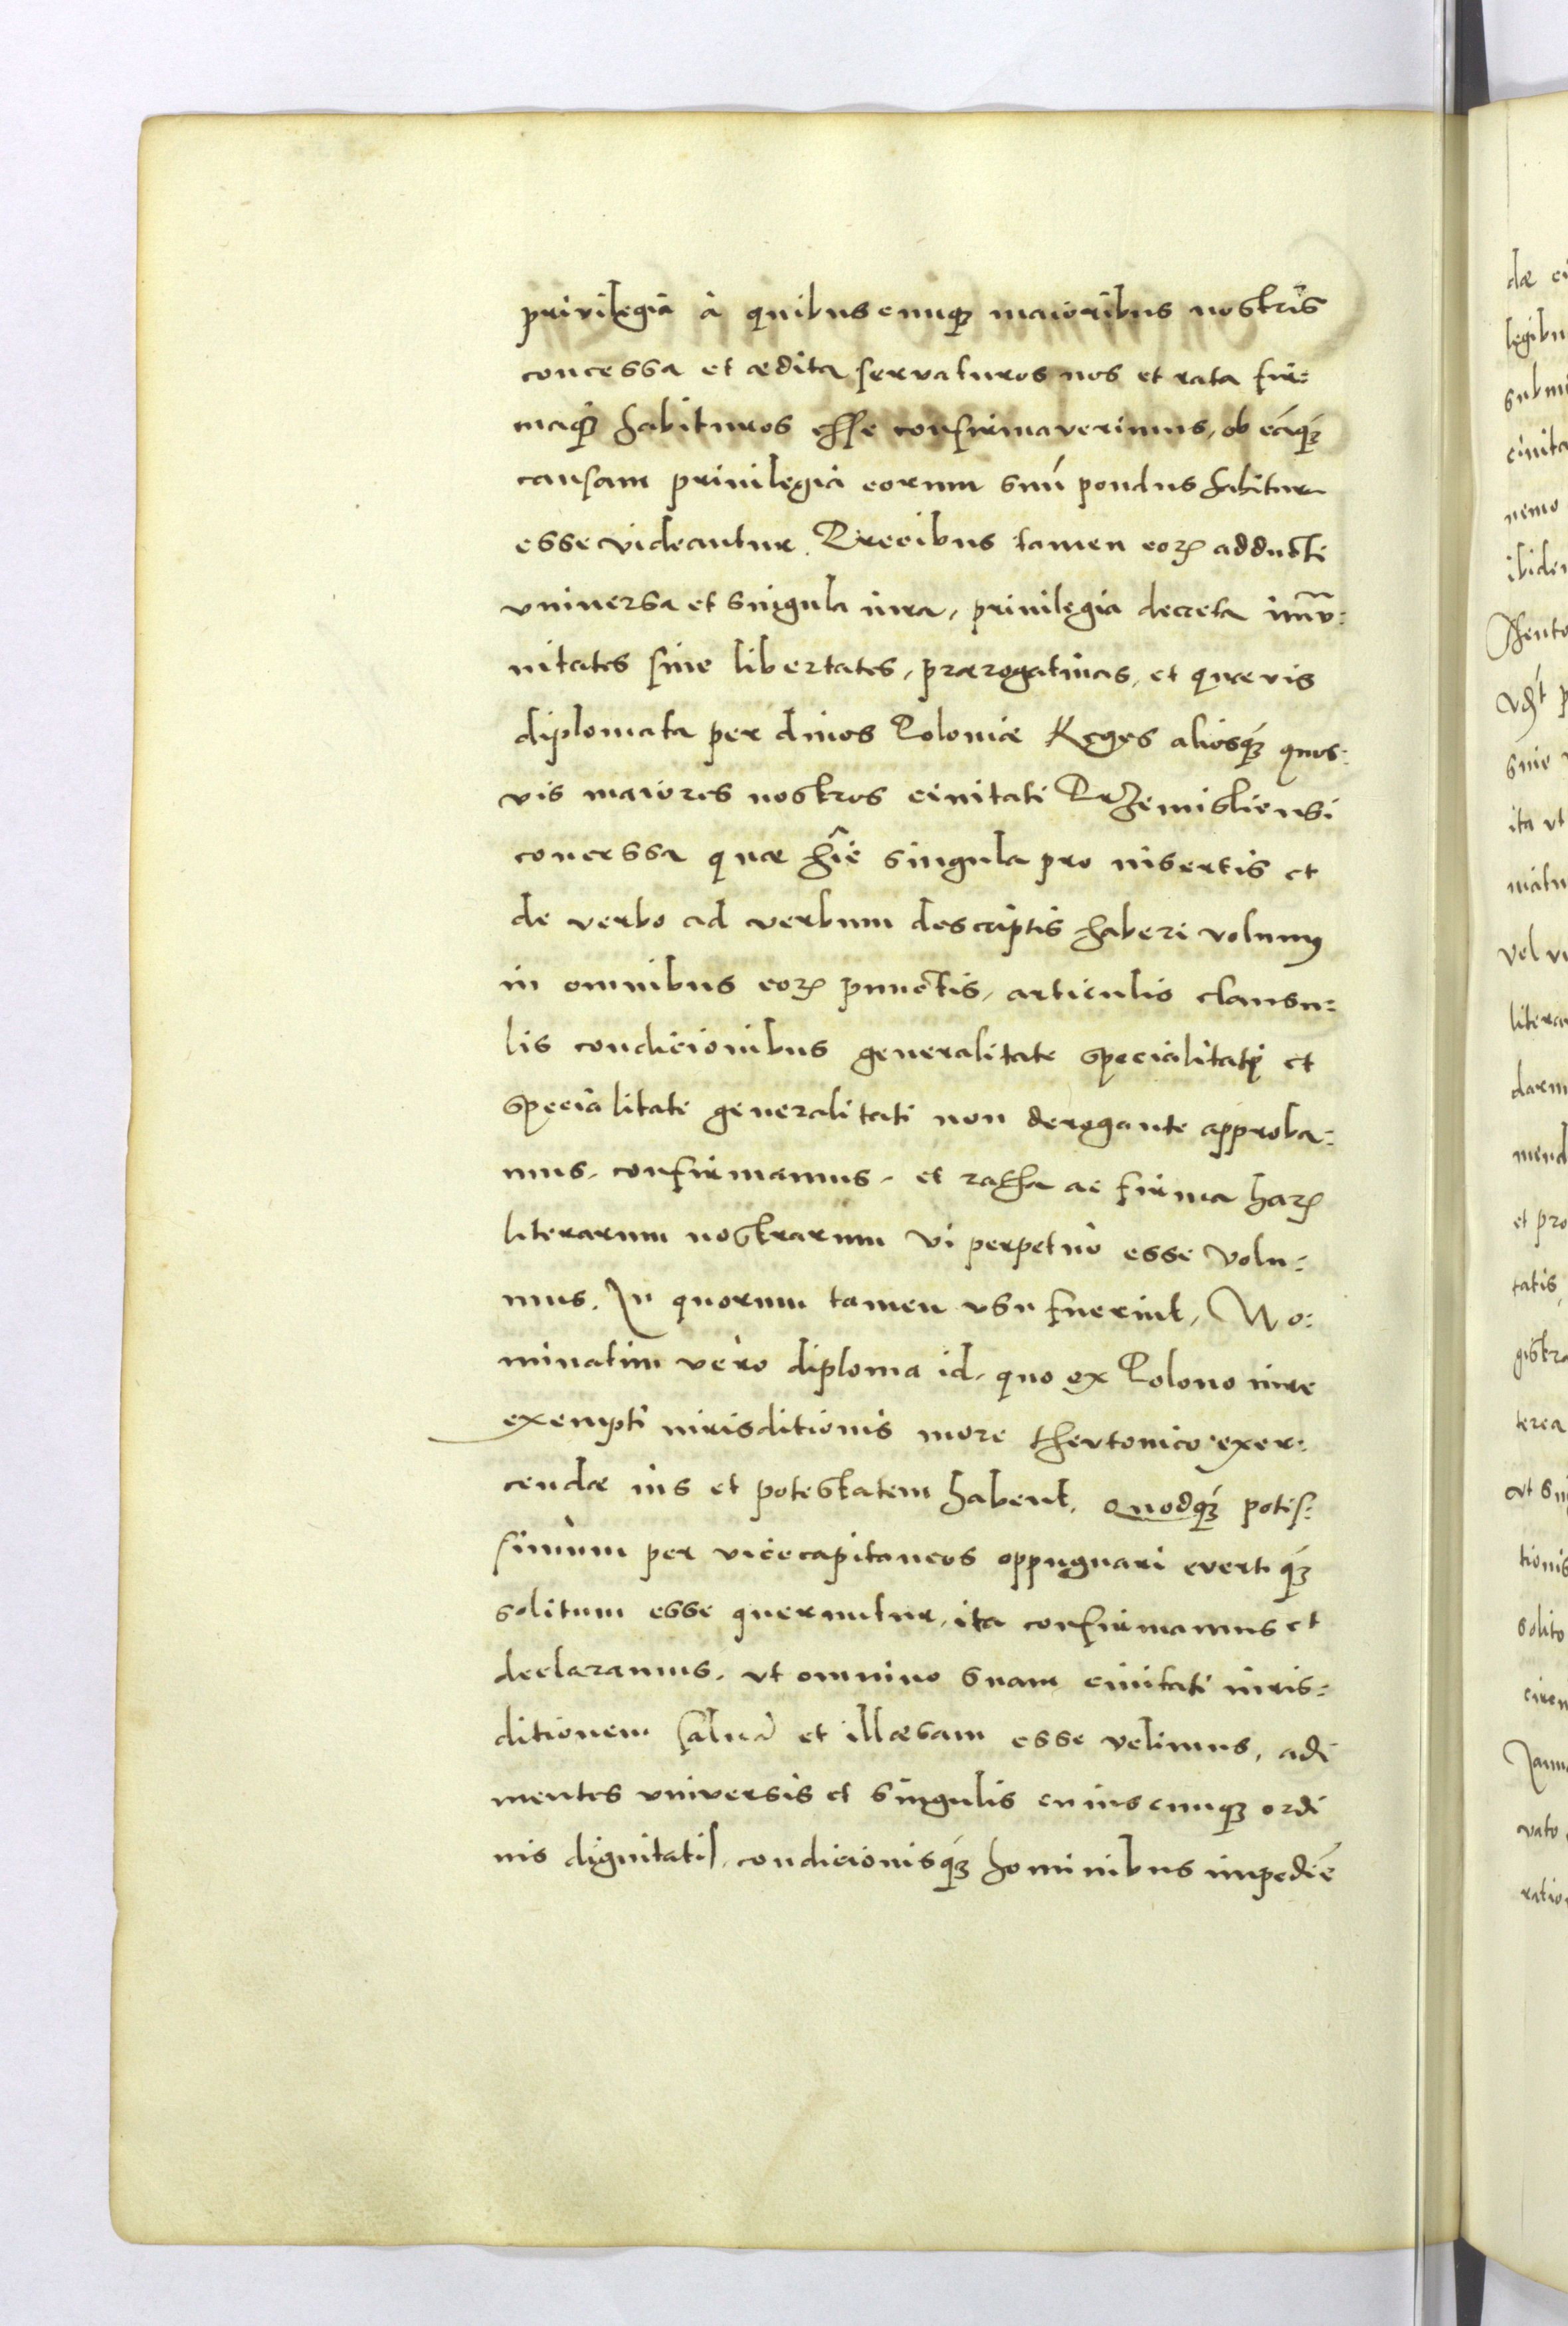 privilegia à quibuscunq maioribus nostris
concessa et ædita servaturos nos et rata fir=
maq habituros esse confirmaverimus, ob eāq
causam privilegia eorum suū pondus habitura
esse videantur. Precibus tamen eoꝝ adducti
vniversa et singula iura, privilegia decreta im̄v=
nitates siue libertates, prærogatiuas, et quævis
diplomata per diuos Poloniæ Reges aliosq quos=
vis maiores nostros ciuitati Przemisliensi
concessa quæ hîc singula pro insertis et
de verbo ad verbum descriptis haberi volumꝰ
in omnibus eoꝝ punctis, articulis clausu=
lis condicionibus generalitate specialitati et
specialitate generalitati non derogante approba=
mus, confirmamus, et ratha ac firma haꝝ
literarum nostrarum vi perpetuò esse volu=
mus. In quorum tamen vsu fuerint, No=
minatim verò diploma id, quo ex Polono iure
exempti iurisditionis more thevtonico exer=
cendæ ius et potestatem habent, quodq potis=
simùm per vicecapitaneos oppugnari evertiq
solitum esse queruntur, ita confirmamus et
declaramus, vt omnino suam ciuitati iuris=
ditionem saluā et illæsam esse velimus, adi
mentes vniversis et singulis cuiuscunq ordi
nis dignitatis, condicionisq hominibus impediē
dæ
legibu
submi
ciuita
nemo
ibide
Theuto
siue
ita vt
vel
litera
darm
mend
et pro
tatis,
gistra
terea
tionis
solito
circu
vato
ratio